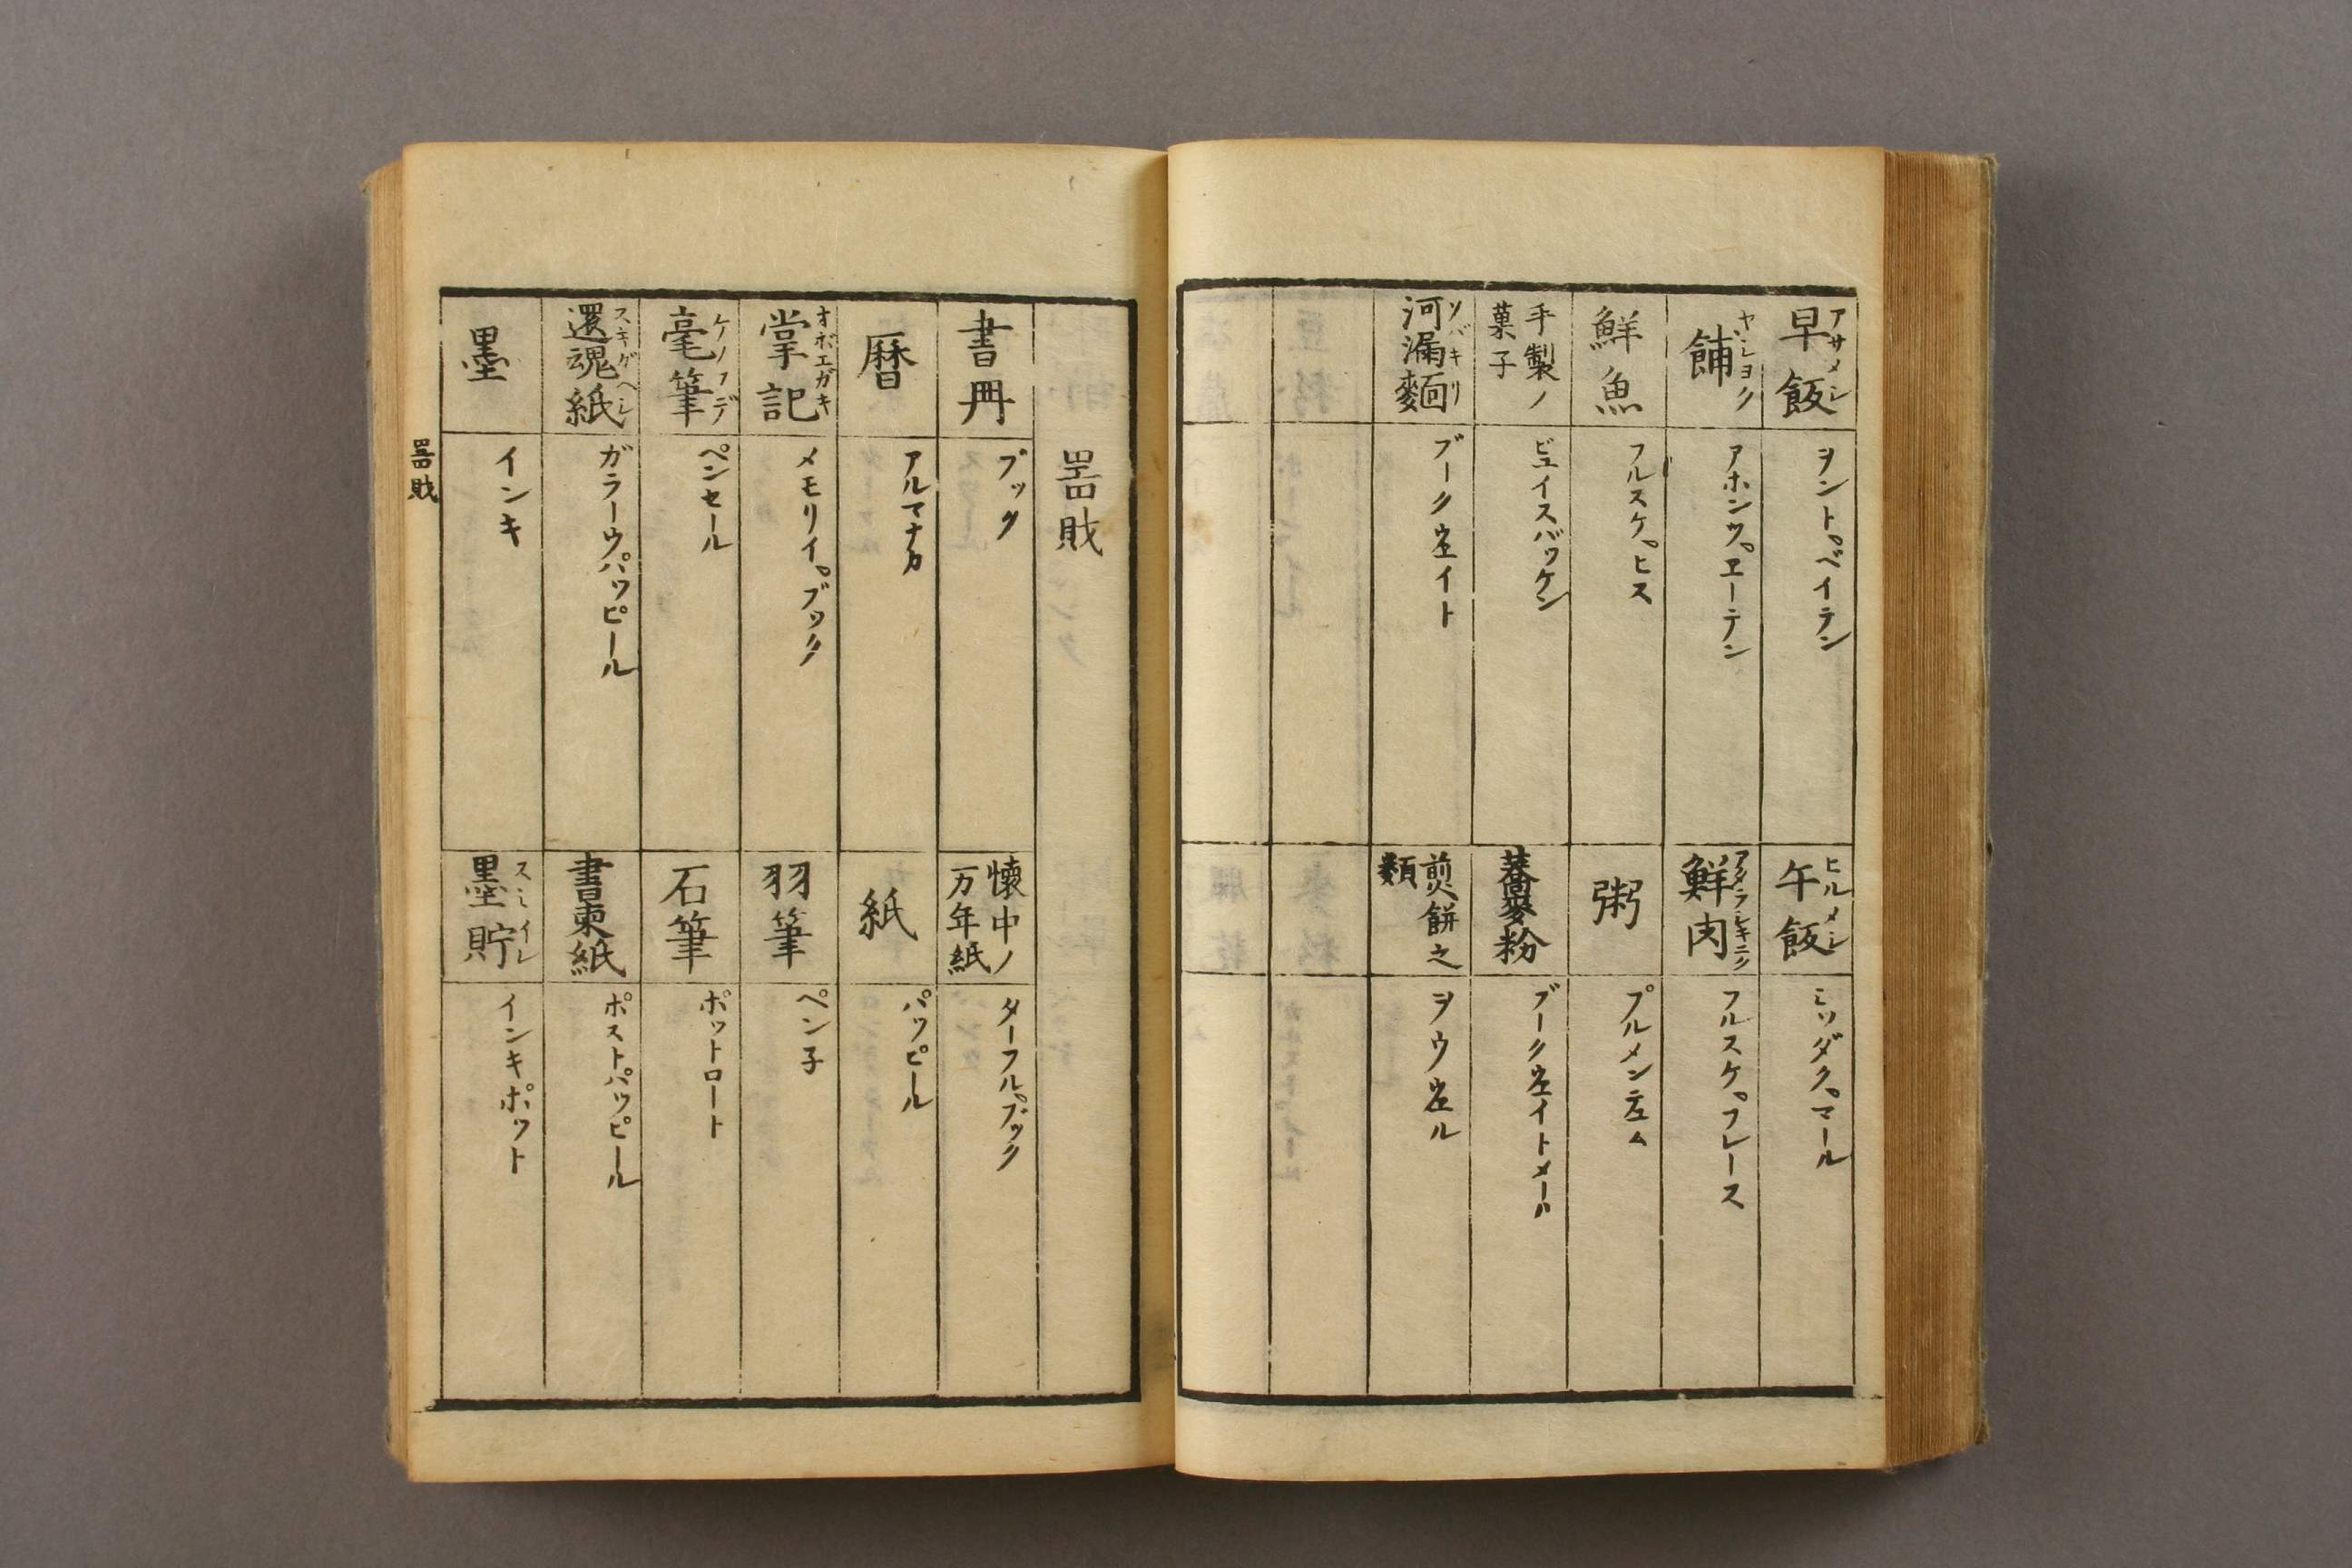 早飯 アサメシ
ヲントペイテン
午飯 ヒルメシ
ミツダクマール
餔 ヤショク
アホンツヱーテン
鮮肉 アタラシキニク
フルスケフレース
鮮魚
フルスケヒス
粥
プルメンテム
手製ノ菓子
ビュイスバッケン
蕎麥粉
ブークヱイトメール
河漏麵 ソバキリ
ブークヱイト
煎餅之類
ヲウヱル
噐財
書冊
ブック
懐中ノ万年紙
ターフルブック
暦
アルマナカ
紙
パッピール
掌記 オボエガキ
メモリイブック
羽筆
ペン子
毫筆 ケノフデ
ペンセール
石筆
ポットロート
還魂紙 スキガヘシ
ガラーウパッピール
書柬紙
ポストパッピール
墨
インキ
墨貯 スミイレ
インキポット
噐財